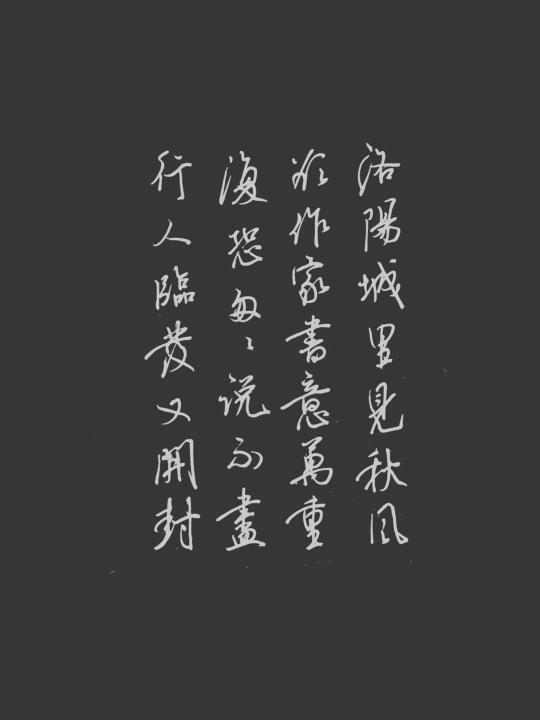 洛陽城里見秋风
欲作家書意萬重
復恐匆〻说不盡
行人臨發又開封